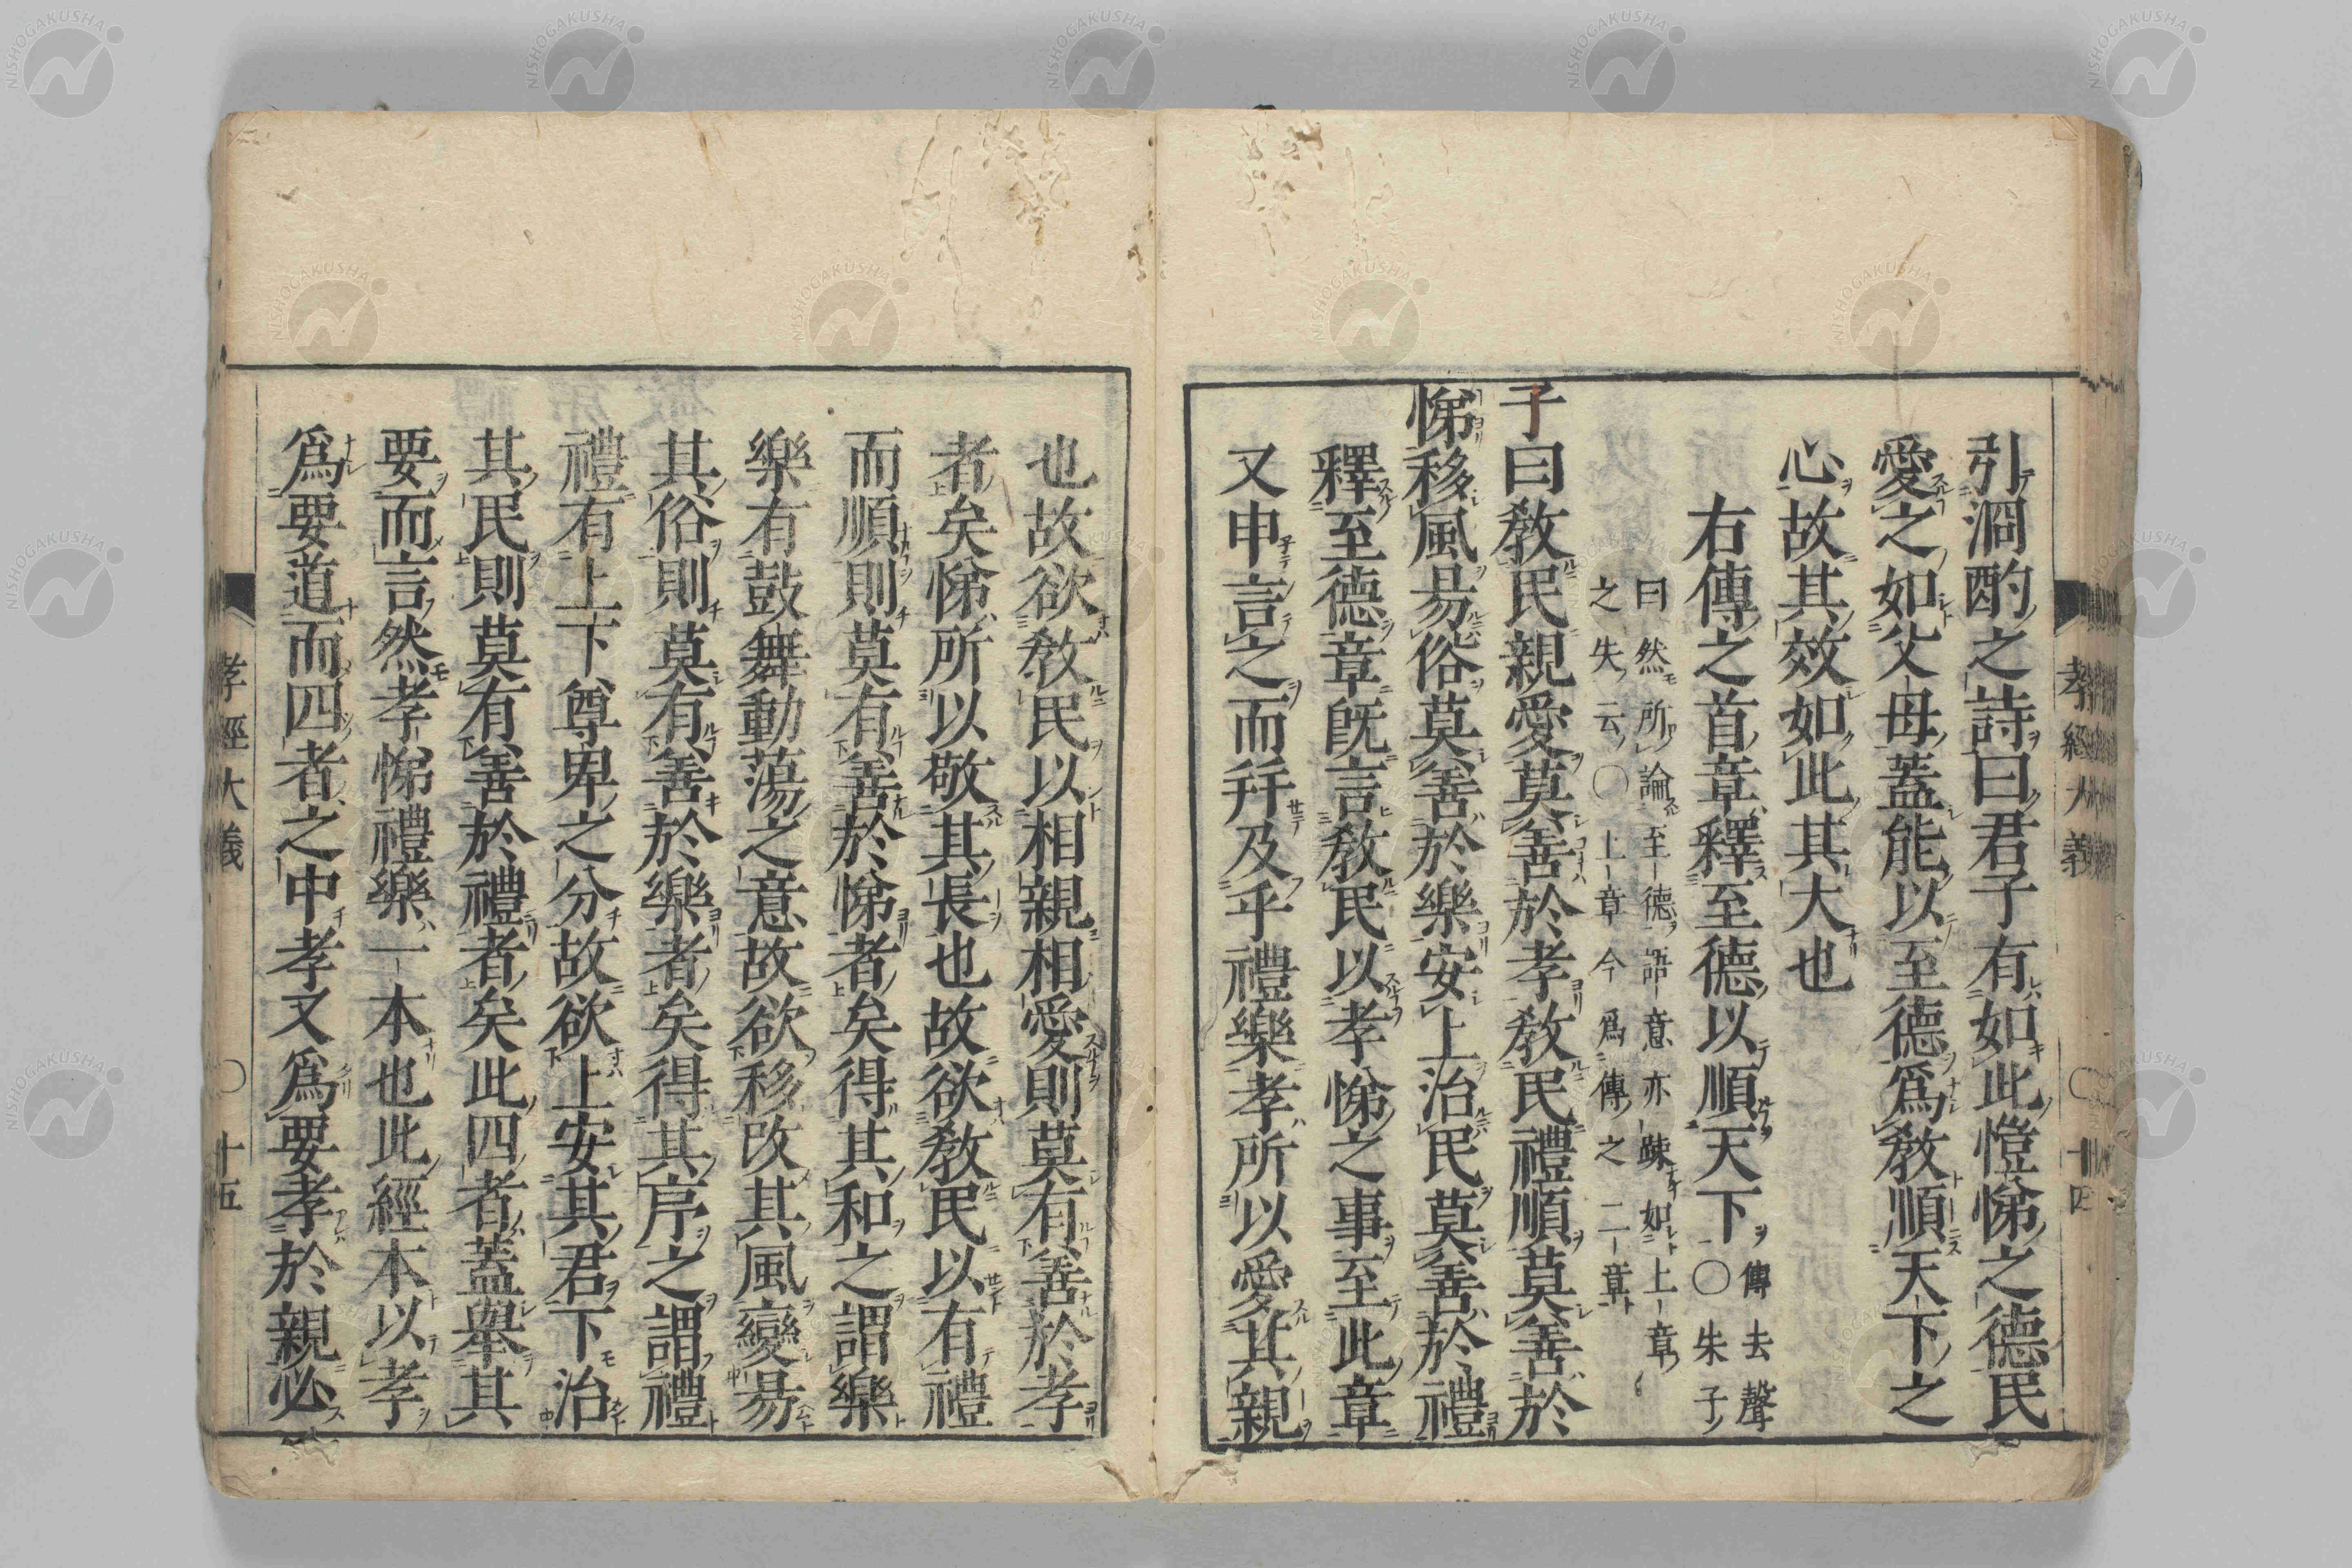 引泂酌之詩曰君子有如此愷悌之德民
愛之如父母蓋能以至德爲教順天下之
心故其效如此其大也
右傳之首章釋至德以順天下〇傳去聲朱子
曰然所論至德語意亦疎如上章
之失云〇上章今爲傳之二章
子曰教民親愛莫善於孝教民禮順莫善於
悌移風昜俗莫善於樂安上治民莫善於禮
釋至德章旣言教民以孝悌之事至此章
又申言之而幷及乎禮樂孝所以愛其親
也故欲教民以相親相愛則莫有善於孝
者矣悌所以敬其長也故欲教民以有禮
而順則莫有善於悌者矣得其和之謂樂
樂有鼓舞動蕩之意故欲移改其風變昜
其俗則莫有善於樂者矣得其序之謂禮
禮有上下尊卑之分故欲上安其君下治
其民則莫有善於禮者矣此四者蓋舉其
要而言然孝悌禮樂一本也此經本以孝
爲要道而四者之中孝又爲要孝於親必
孝經大義 〇 十四
孝經大義 〇 十五
NISHOGAKUSHA